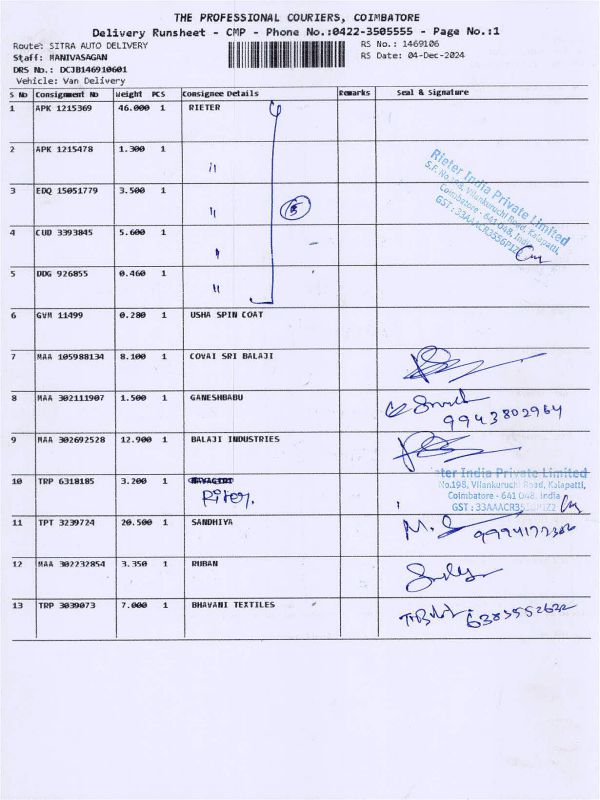 THE PROFESSIONAL COURIERS, COIMBATORE
Delivery Runsheet - CMP - Phone No.:0422-3505555 - Page No.:1
Route: SITRA AUTO DELIVERY
RS No.: 1469106
Staff: MANIVASAGAN
RS Date: 04-Dec-2024
DRS No.: DCJB146910601
Vehicle: Van Delivery
S No Consignment No Weight PCS Consignee Details Remarks Seal & Signature
1 APK 1215369 46.000 1 RIETER
2 APK 1215478 1.300 1 "
3 EDQ 15051779 3.500 1 " 5
4 CUD 3393845 5.600 1 "
5 DDG 926855 0.460 1 "
Rieter India Private Limited
S.F. No.198, Vilankuruchi Road, Kalapatti,
Coimbatore - 641 048, India
GST : 33AAACR3556P1Z2
6 GVM 11499 0.280 1 USHA SPIN COAT
7 MAA 105988134 8.100 1 COVAI SRI BALAJI
8 MAA 302111907 1.500 1 GANESHBABU
9943802964
9 MAA 302692528 12.900 1 BALAJI INDUSTRIES
10 TRP 6318185 3.200 1
Riter.
ter India Private Limited
No.198, Vilankuruchi Road, Kalapatti,
Coimbatore - 641 048, India
GST : 33AAACR3556P1Z2
11 TPT 3239724 20.500 1 SANDHIYA
12 MAA 302232854 3.350 1 RUBAN
13 TRP 3039073 7.000 1 BHAVANI TEXTILES
6383552632